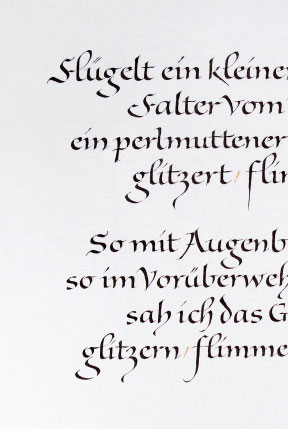 Flügelt ein kleiner
Falter vom
ein perlmuttener
glitzert, flim
So mit Augenb
so im Vorüberweh
sah ich das G
glitzern, flimme